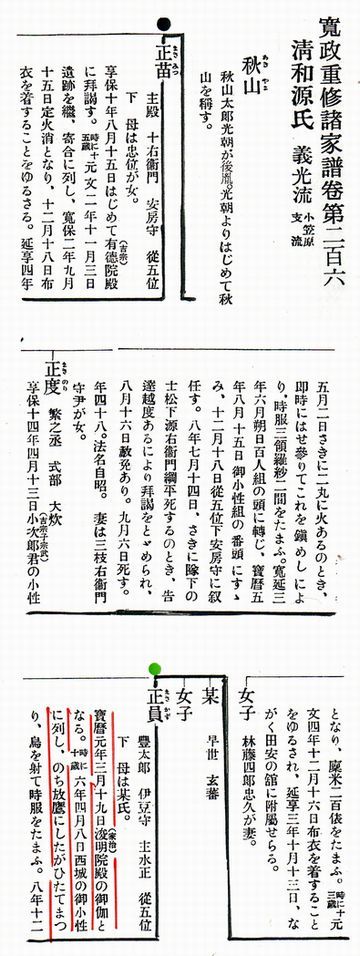 寛政重修諸家譜卷第二百六
清和源氏 義光流 小笠原支流
秋山 あきやま
秋山太郎光朝が後胤。光朝よりはじめて秋
山を稱す。
正苗 まさみつ
主殿 十右衞門 安房守 從五位
下 母は忠位が女。
享保十年八月十五日はじめて有德院殿(吉宗)
に拜謁す。時に十五歲元文二年十一月三日
遺跡を繼、寄合に列し、寬保二年九月
十五日定火消となり、十二月十八日布
衣を着することをゆるさる。延享四年
五月二日さきに二丸に火あるのとき、
卽時にはせ參りてこれを鎭めしによ
り、時服三領羅紗二間をたまふ。寬延三
年六月朔日百人組の頭に轉じ、寶曆五
年八月十五日御小性組の番頭にすゝ
み、十二月十八日從五位下安房守に叙
任す。八年七月十四日、さきに隊下の
士松下源右衞門綱平死するのとき、告
達越度あるにより拜謁をとゞめられ、
八月十六日赦免あり。九月六日死す。
年四十八。法名自昭。 妻は三枝右衞門
守尹が女。
正度 まさのり
繁之丞 式部 大炊
享保十四年四月十三日小次郎君(吉宗子宗武)の小性
となり、廩米二百俵をたまふ。時に十三歲元
文四年十二月十六日布衣を着すること
をゆるされ、延享三年十月十三日、な
がく田安の舘に附屬せらる。
女子 林藤四郎忠久が妻。
某 早世 玄蕃
女子
正員 まさかず
豐太郎 伊豆守 主水正 從五位
下 母は某氏。
寶曆元年三月十九日浚明院殿(家治)の御伽と
なる。時に十歲六年四月八日西城の御小性
に列し、のち放鷹にしたがひたてまつ
り、鳥を射て時服をたまふ。八年十二